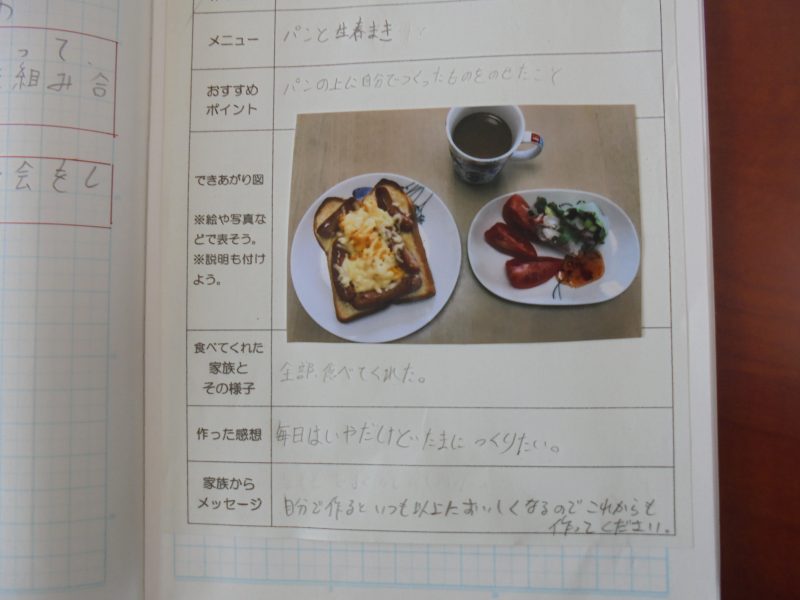 って、
組み合
会をし
メニュー
パンと生春まき
おすすめ
ポイント
パンの上に自分でつくったものをのせたこと
できあがり図
※絵や写真な
どで表そう。
※説明も付け
よう。
食べてくれた
家族と
その様子
全部、食べてくれた。
作った感想
毎日はいやだけど、たまにつくりたい。
家族から
メッセージ
自分で作るといつも以上においしくなるのでこれからも
作ってください。